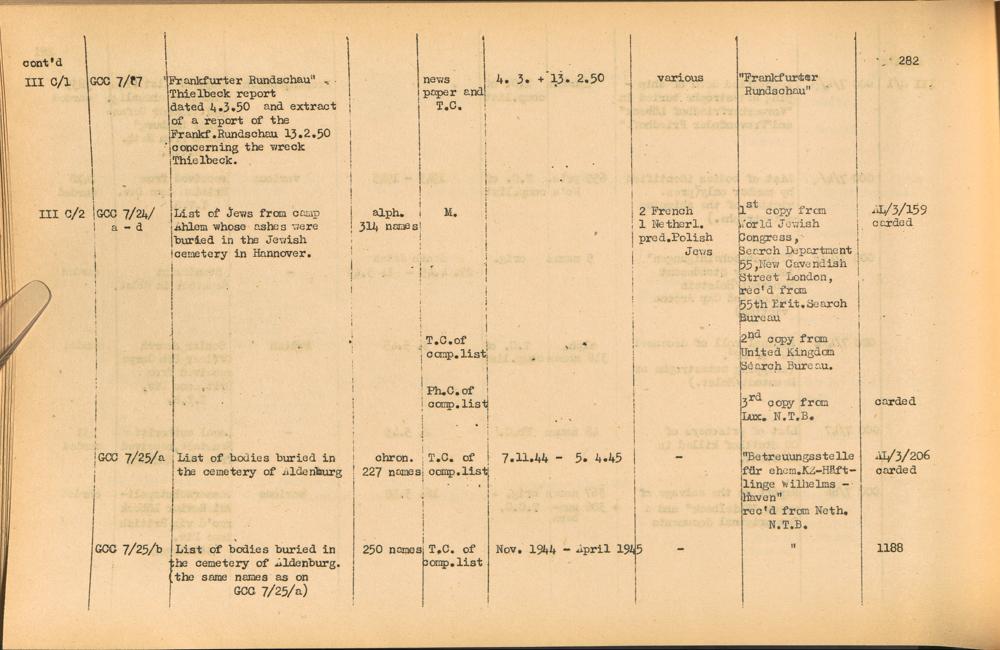 282
cont'd
III C/1 GCC 7/17 "Frankfurter Rundschau" news 4. 3. + 13. 2.50 various "Frankfurter
Thielbeck report paper and Rundschau"
dated 4.3.50 and extract T.C.
of a report of the
Frankf.Rundschau 13.2.50
concerning the wreck
Thielbeck.
III C/2 GCC 7/24/ List of Jews from camp alph. M. 2 French 1st copy from AL/3/159
a - d Ahlem whose ashes were 314 names 1 Netherl. World Jewish carded
buried in the Jewish pred.Polish Congress,
cemetery in Hannover. Jews Search Department
55,New Cavendish
Street London,
rec'd from
55th Brit.Search
Bureau
T.C.of 2nd copy from
comp.list United Kingdom
Search Bureau.
Ph.C.of
comp.list 3rd copy from carded
Lux. N.T.B.
GCC 7/25/a List of bodies buried in chron. T.C. of 7.11.44 - 5. 4.45 - "Betreuungsstelle AL/3/206
the cemetery of Aldenburg 227 names comp.list für ehem.KZ-Häft- carded
linge Wilhelms -
Haven"
rec'd from Neth.
N.T.B.
GCC 7/25/b List of bodies buried in 250 names T.C. of Nov. 1944 - April 1945 - " 1188
the cemetery of Aldenburg. comp.list
(the same names as on
GCC 7/25/a)